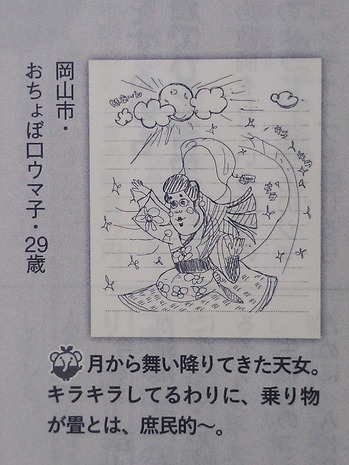 岡山市・
おちょぼ口ウマ子・29歳
月から舞い降りてきた天女。
キラキラしてるわりに、乗り物
が畳とは、庶民的〜。